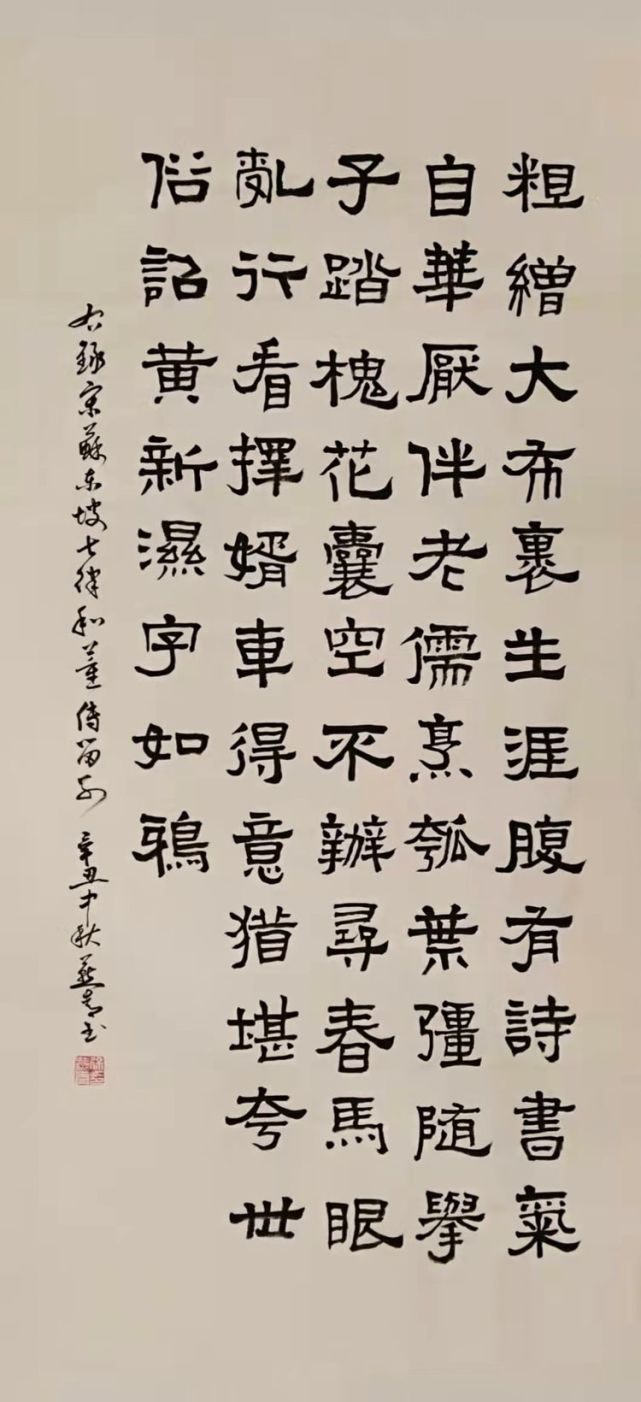 粗繒大布裹生涯腹有詩書氣
自華厭伴老儒烹瓠葉彊隨舉
子踏槐花囊空不辦尋春馬眼
亂行看擇婿車得意猶堪夸世
俗詔黃新濕字如鴉
右錄宋蘇東坡七律和董傳留別 辛丑中秋書